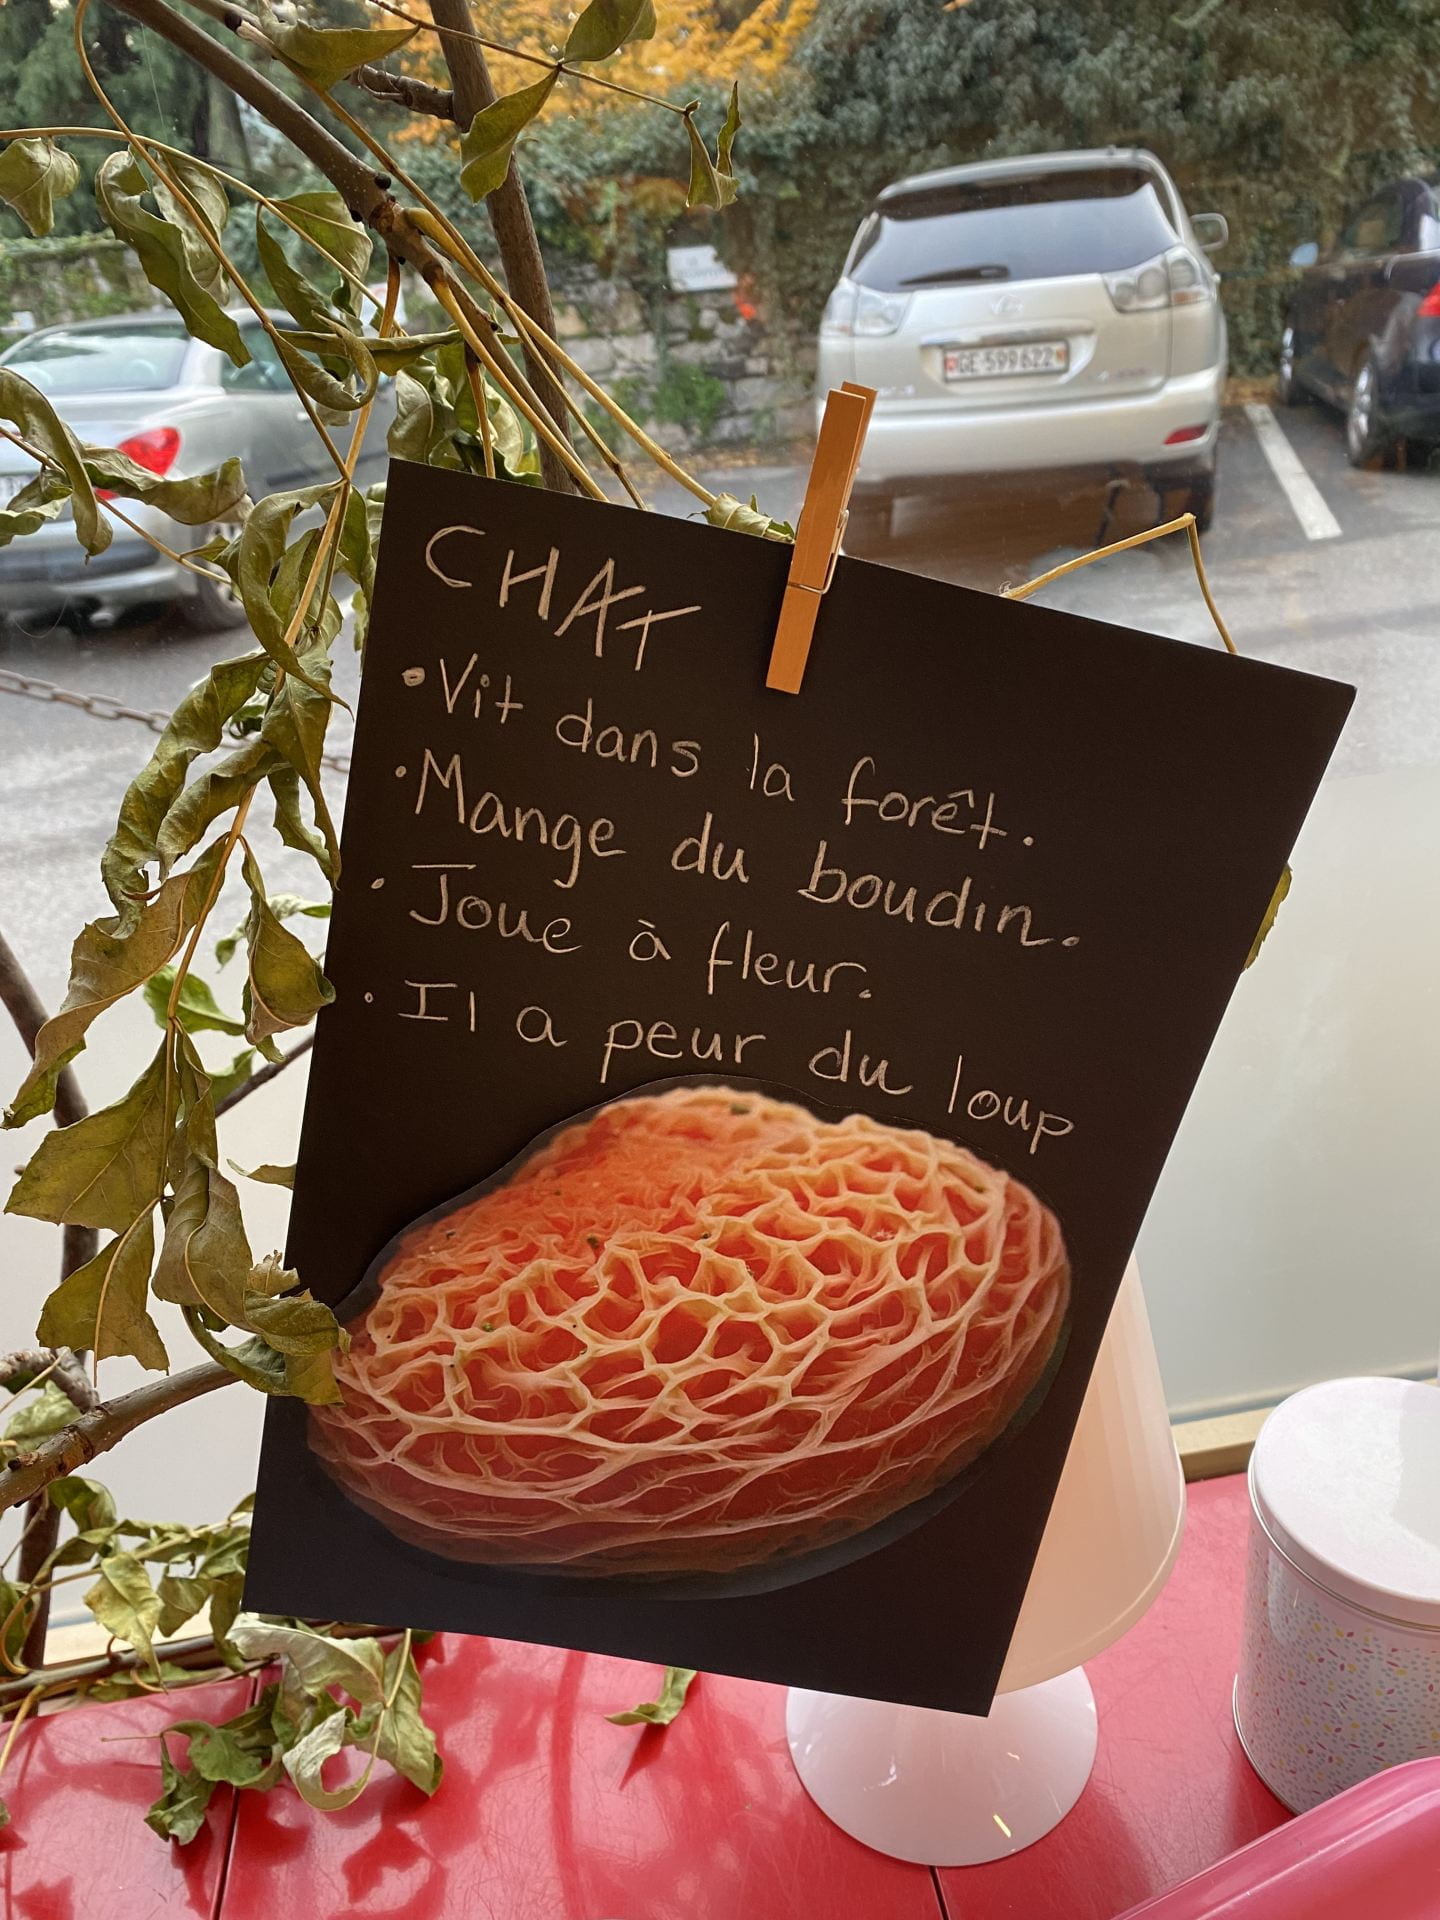 CHAT
• Vit dans la forêt.
• Mange du boudin.
• Joue à fleur.
• Il a peur du loup
GE·599622